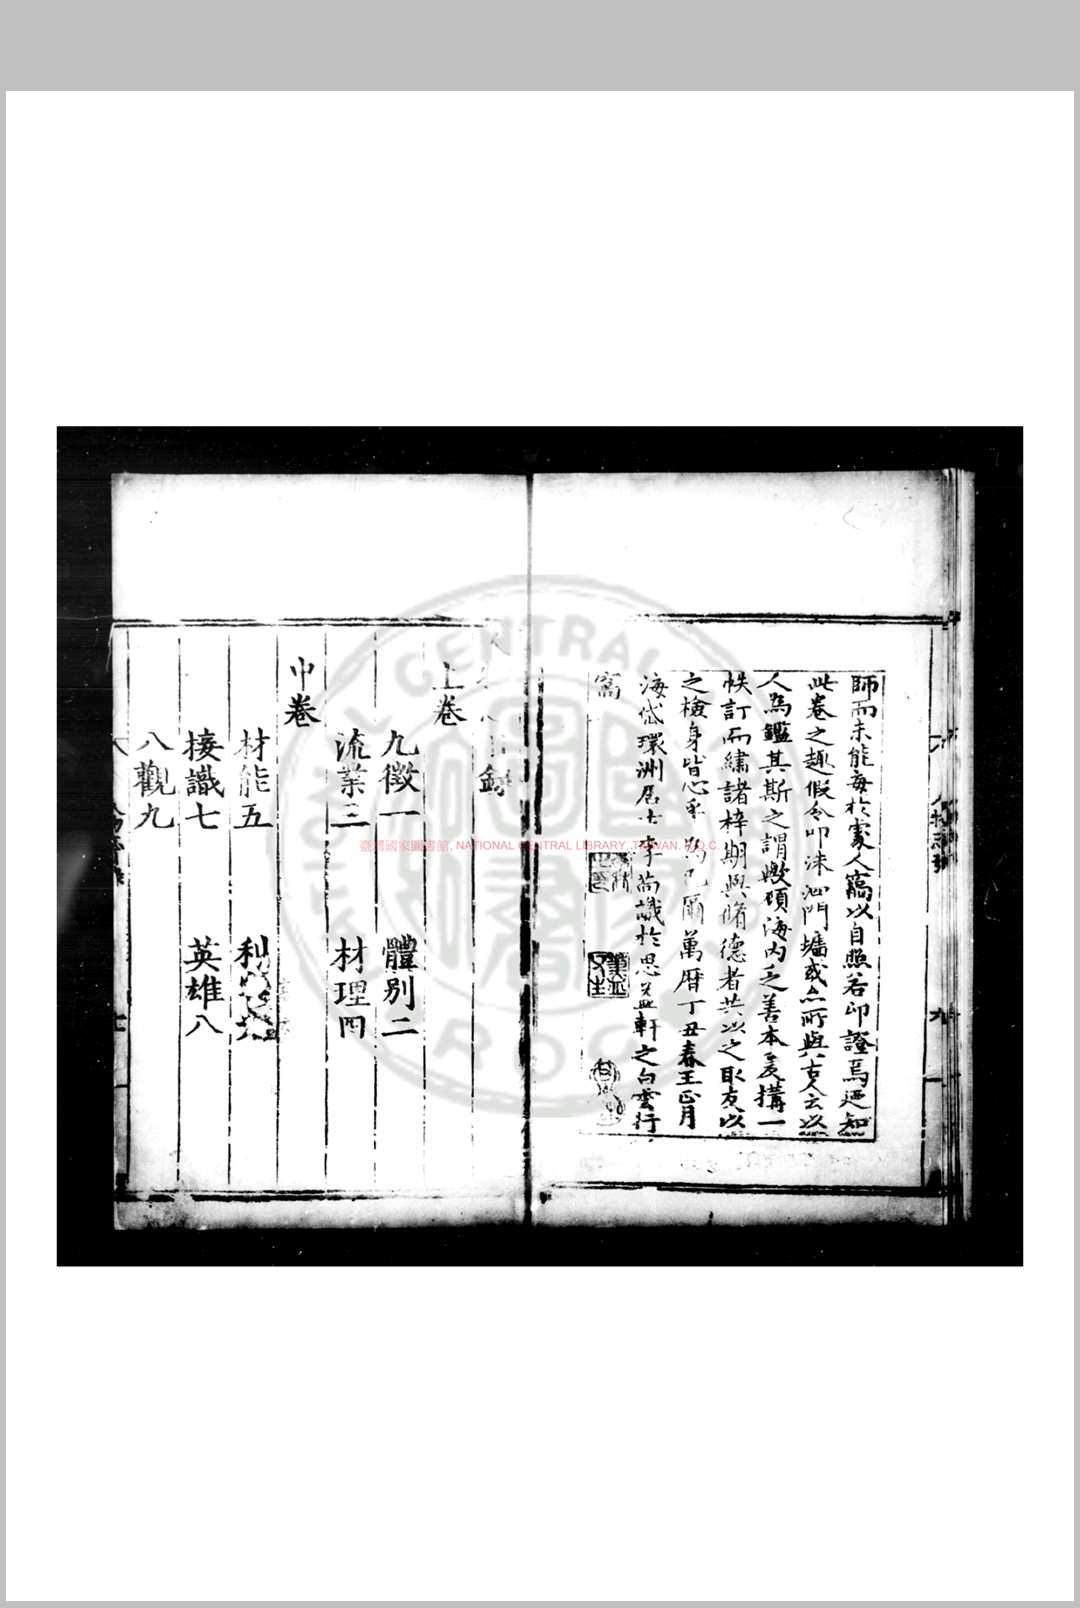 師而未能每於蒙人竊以自照若印證焉廼知
此卷之趣假令叩洙泗門墻或亦所與古人云以
人為鑑其斯之謂歟頃海内乏善本爰搆一
帙訂而繡諸梓期與脩德者共以之取友以
之檢身皆心乎
爾萬曆丁丑春王正月
海岱環洲居士李
識於思益軒之白雲行
窩
上卷
九徵一 體別二
流業三 材理四
中卷
材能五 利害六
接識七 英雄八
八觀九
臺灣國家圖書館, NATIONAL CENTRAL LIBRARY, TAIWAN, R.O.C.
NATIONAL CENTRAL LIBRARY ROC